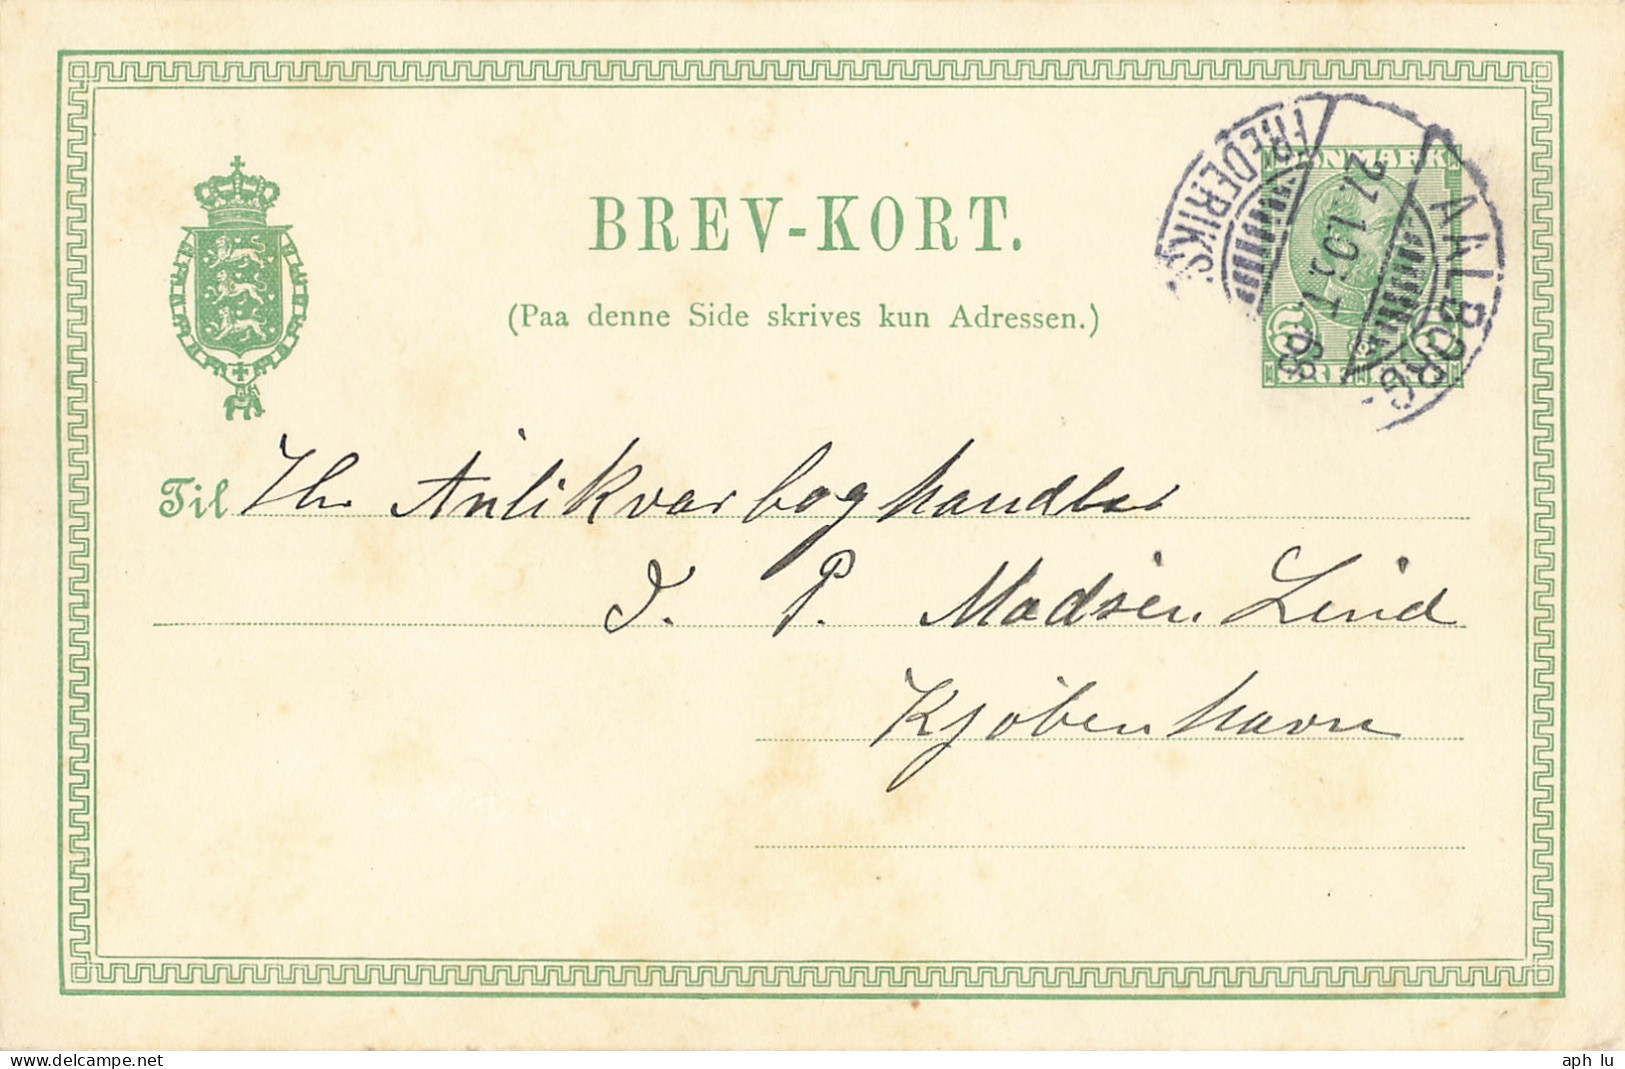 BREV-KORT.
(Paa denne Side skrives kun Adressen.)
DANMARK
5 ØRE 5
AALBORG
FREDERIKS
27.1.06.
Til Hr Antikvarboghandler
I. P. Madsen Lind
Kjøbenhavn
www.delcampe.net
aph lu